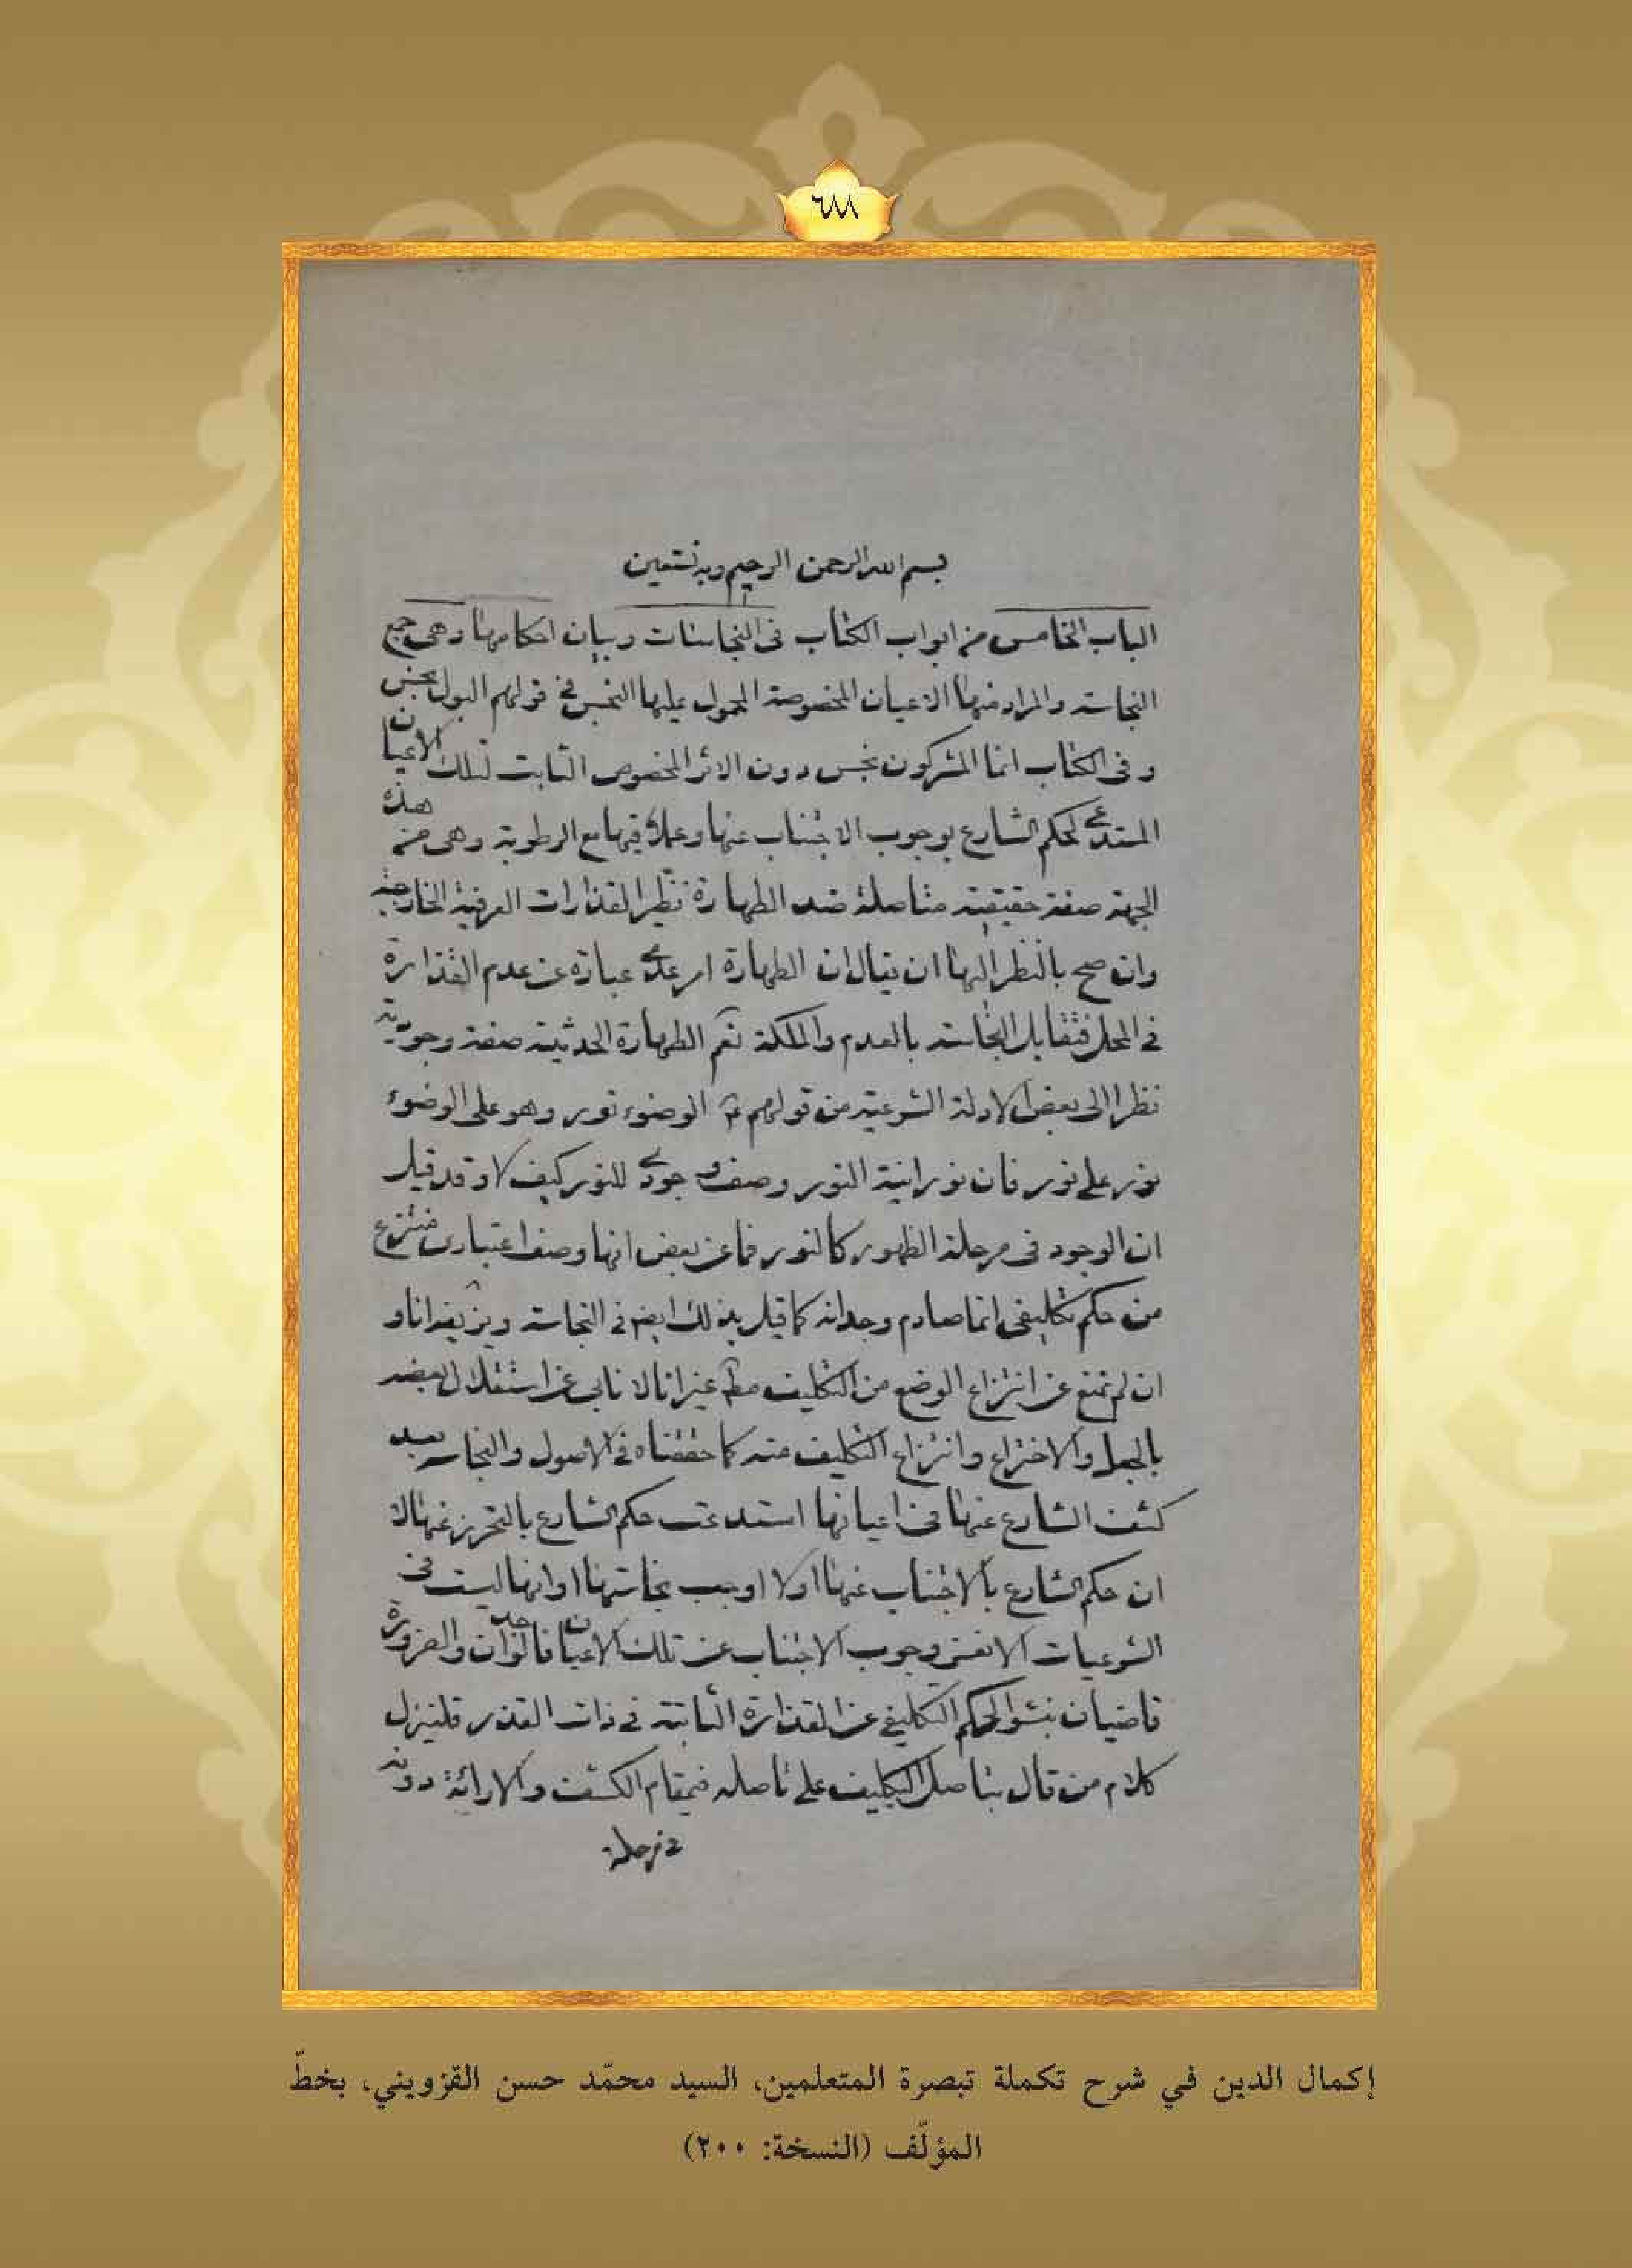 ٦٨٨
بسم الله الرحمن الرحيم وبه نستعين
الباب الخامس من ابواب الكتاب فى النجاسات وبيان احكامها وهى جمع
النجاسة والمراد منها الاعيان المخصوصة المحمول عليها النجس فى قولهم البول نجس
وفى الكتاب انما المشركون نجس دون الاثر المخصوص الثابت لتلك الاعيان
المستدعى لحكم الشارع بوجوب الاجتناب عنها وعملا فيها مع الرطوبة وهى من هذه
الجهة صفة حقيقية متاصلة ضد الطهارة نظير القذارات العرفية الخارجية
وان صح بالنظر اليها ان يقال ان الطهارة امر عدمى عبارة عن عدم القذارة
فى المحل فتقابل النجاسة بالعدم والملكة نعم الطهارة الحدثية صفة وجودية
نظرا الى بعض الادلة الشرعية من قولهم ع الوضوء نور وهو على الوضوء
نور على نور فان نورانية النور وصف وجودى للنور كيف لا وقد قيل
ان الوجود فى مرحلة الظهور كالنور فما عن بعض انها وصف اعتبارى منتزع
من حكم تكليفى انما صادم وجدانه كما قيل بذلك ايضا فى النجاسة ونزيف انا و
ان لم نمنع عن انتزاع الوضع من التكليف مط غير انا لا نابى عن استقلال بعضه
بالجعل والاختراع وانتزاع التكليف منه كما حققناه فى الاصول والنجاسة بعد
كشف الشارع عنها فى اعيانها استدعت حكم الشارع بالتحرز عنها لا
ان حكم الشارع بالاجتناب عنها اولا اوجب نجاستها او انها ليست فى
الشرعيات الا نفس وجوب الاجتناب عن تلك الاعيان فالوجدان والضرورة
قاضيان بنشو الحكم التكليفى عن القذارة الثابتة فى ذات القذر فلينزل
كلام من قال بتاصل التكليف على تاصله فى مقام الكشف والارائة دونه
فى مرحلة
إكمال الدين في شرح تكملة تبصرة المتعلمين، السيد محمّد حسن القزويني، بخطّ
المؤلّف (النسخة: ٢٠٠)